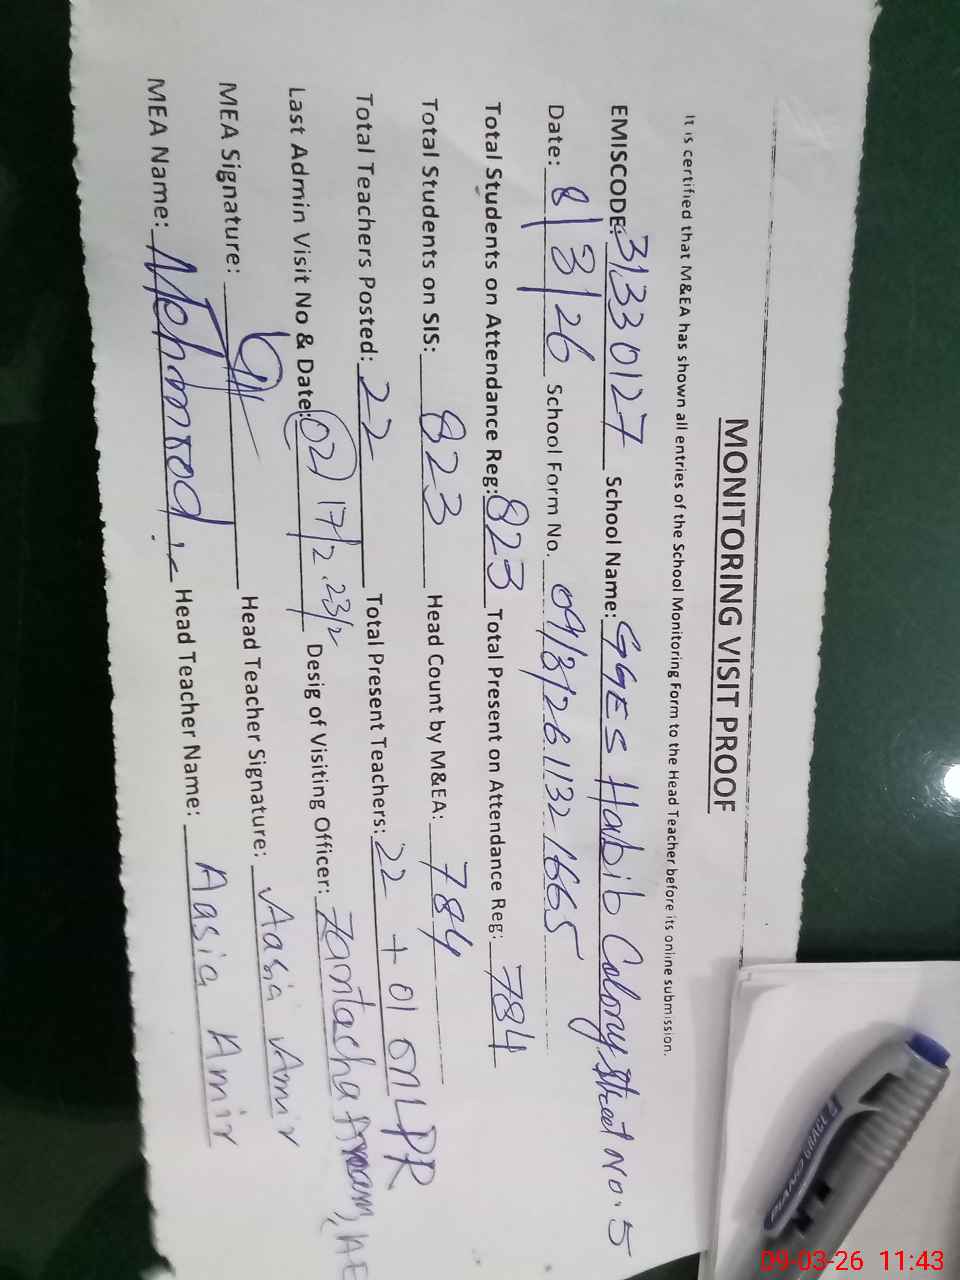 MONITORING VISIT PROOF
It is certified that M&EA has shown all entries of the School Monitoring Form to the Head Teacher before its online submission.
EMISCODE: 31330127 School Name: GGES Habib Colony Street No. 5
Date: 8/3/26 School Form No. 09/3/26 1132 1665
Total Students on Attendance Reg: 823 Total Present on Attendance Reg: 784
Total Students on SIS: 823 Head Count by M&EA: 784
Total Teachers Posted: 22 Total Present Teachers: 22 + 01 on LPR
Last Admin Visit No & Date: 02 17/2 . 23/2 Desig of Visiting Officer:
MEA Signature: Head Teacher Signature: Aasia Amir
MEA Name: Mehmood Head Teacher Name: Aasia Amir
PIANO
09-03-26 11:43